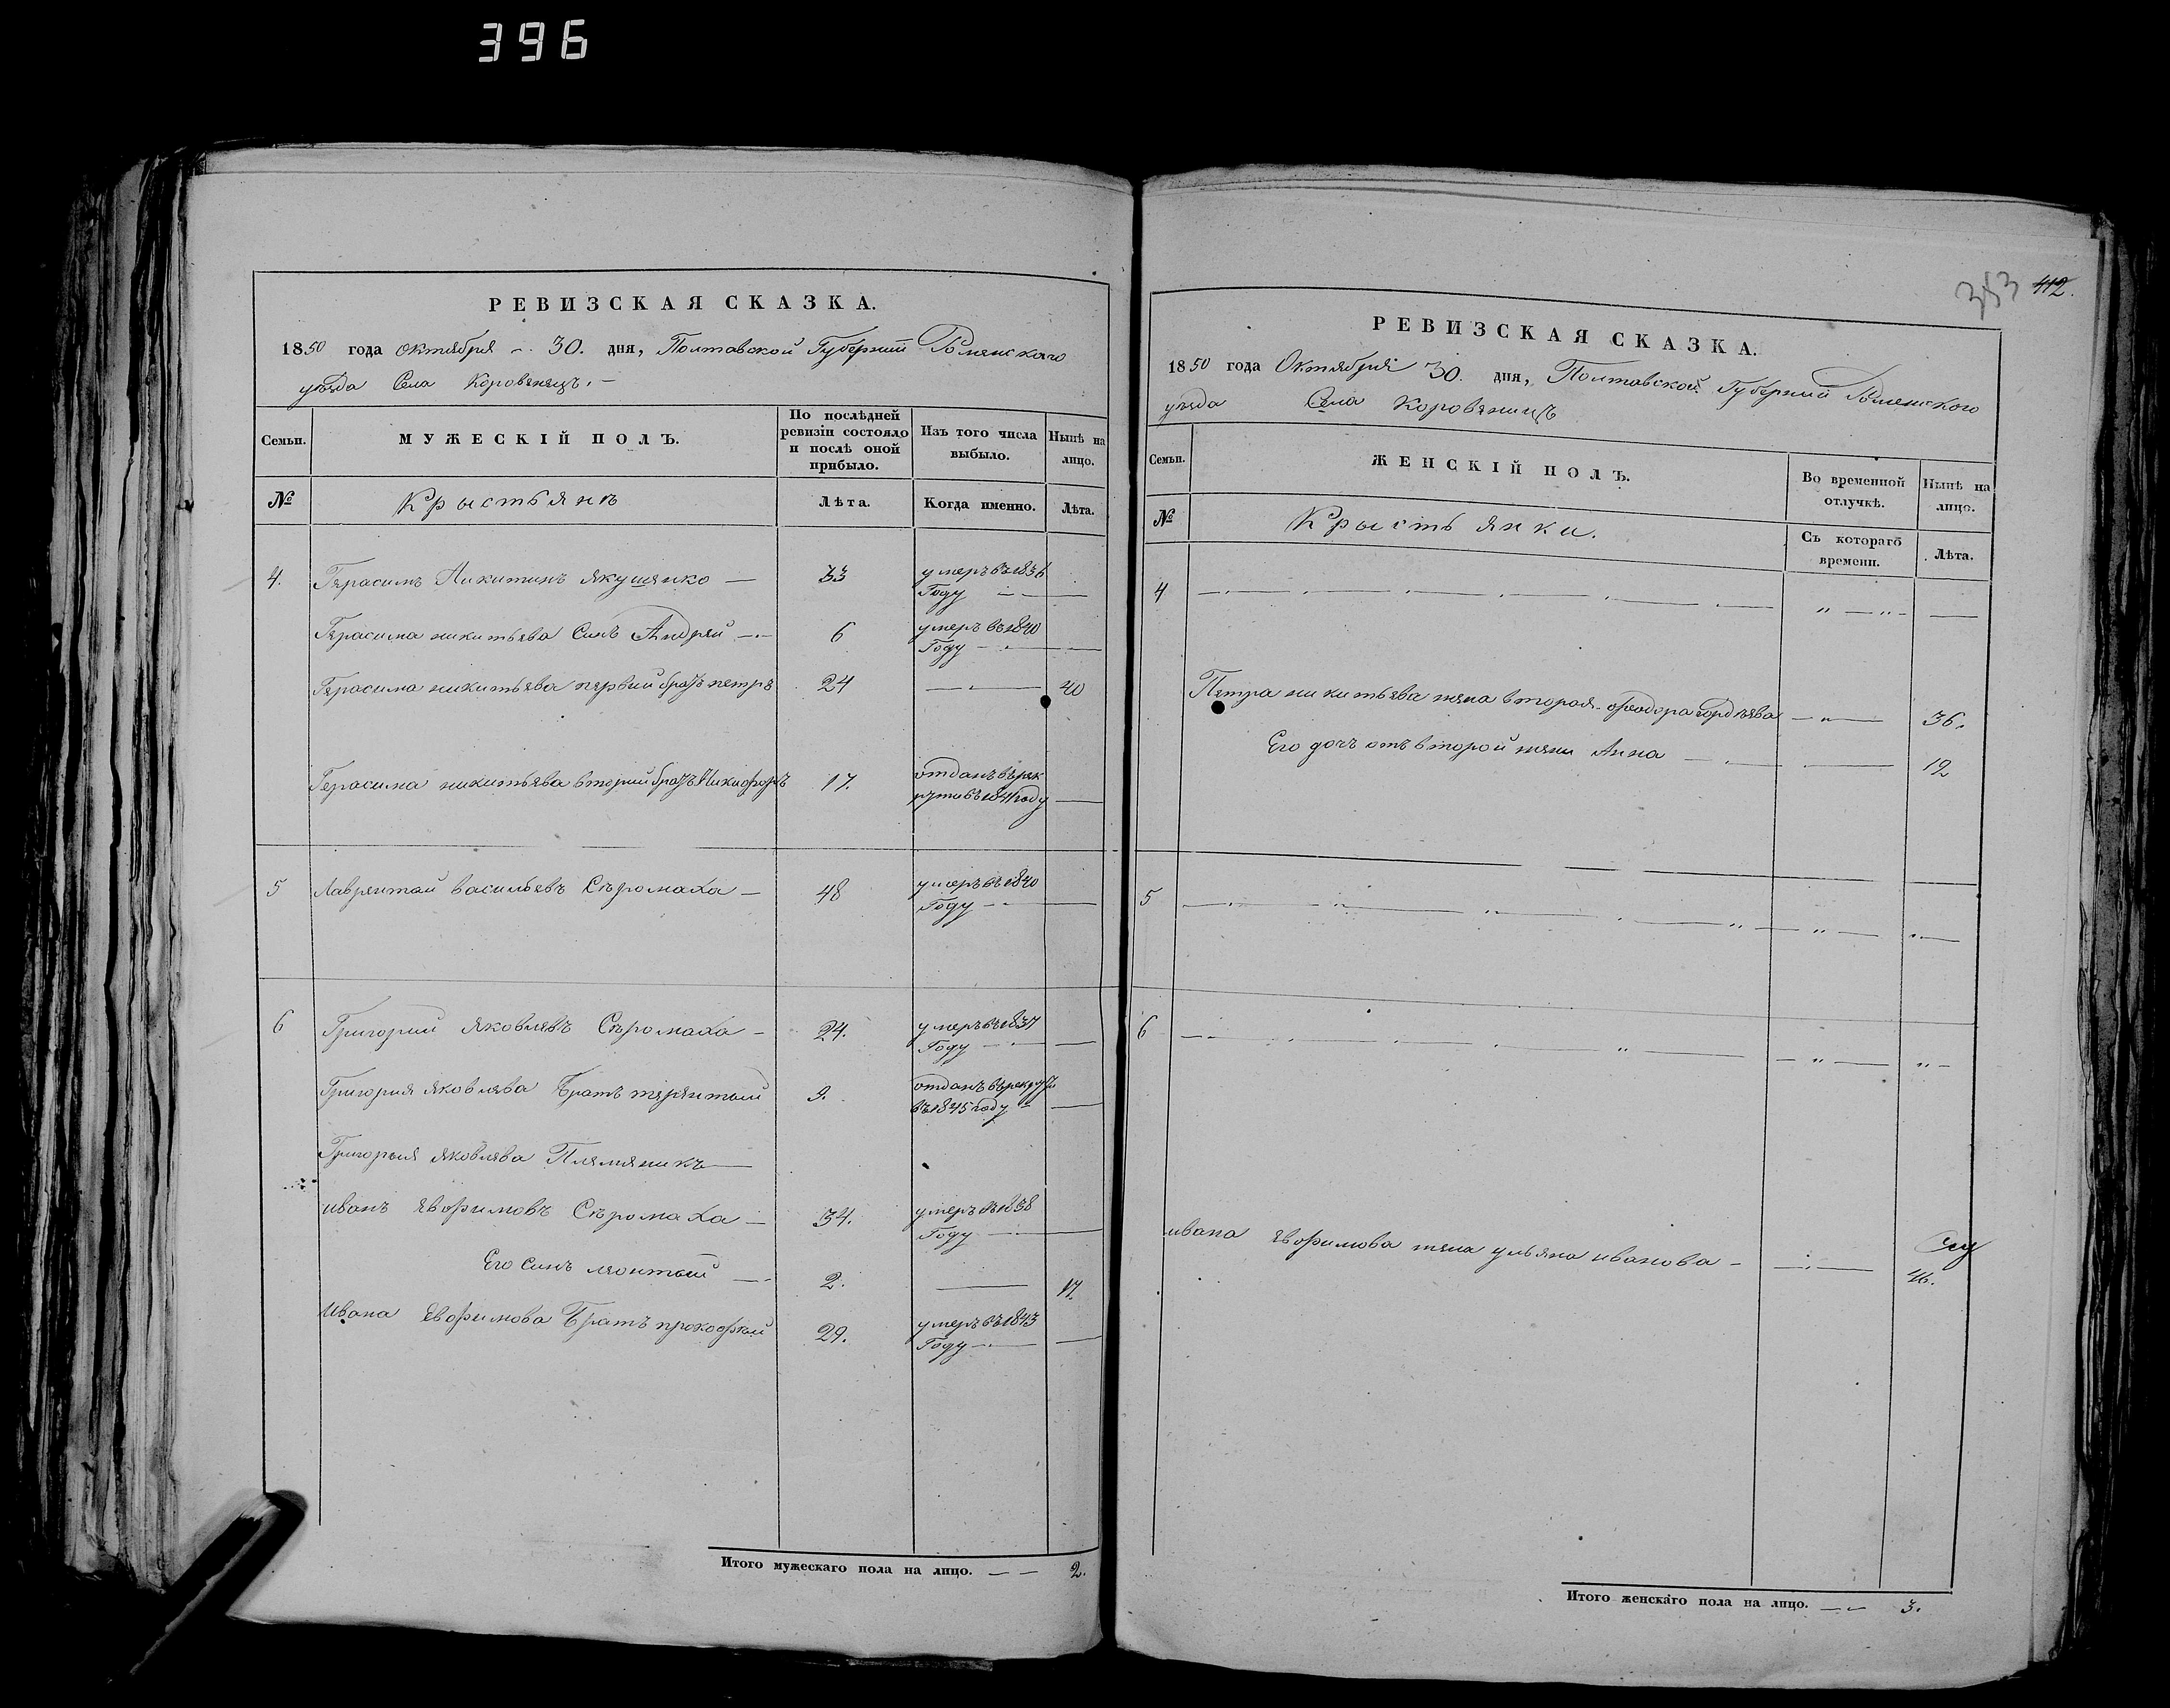 396
РЕВИЗСКАЯ СКАЗКА.
1850 года октября 30. дня, Полтавской Губерній Роменского
уезда Села Коровянецъ.
Семьи. МУЖЕСКІЙ ПОЛЪ. По послѣдней ревизіи состояло и послѣ оной прибыло. Изъ того числа выбыло. Нынѣ на лицо.
№ Крыстьянъ Лѣта. Когда именно. Лѣта.
4. Герасимъ Никитинъ Якушенко — 33 умеръ въ 1836
Году —
Герасима никитьева Синъ Андрей — 6 умеръ въ 1840
Году —
Герасима никитьева первий братъ петръ 24 — 40
Герасима никитьева вторий братъ Никифоръ 17. отданъ въ рек
руты въ 1841 году —
5 Лаврентай васильевъ Сѣромаха — 48 умеръ въ 1840
Году —
6 Григорий яковлевъ Сѣромаха — 24. умеръ въ 1837
Году —
Григория яковлева Братъ терентый 9. отданъ въ рекруты
въ 1845 году —
Григорыя яковлева Племяникъ —
иванъ евфимовъ Сѣромаха — 34. умеръ въ 1838
Году —
Его Синъ леонтый — 2. — 17
Ивана Евфимова Братъ прокофий 29. умеръ въ 1843
Году —
Итого мужескаго пола на лицо. — — 2.
353 412.
РЕВИЗСКАЯ СКАЗКА.
1850 года Октября 30. дня, Полтавской Губерний Роменского
уезда Села Коровянецъ
Семьи. ЖЕНСКІЙ ПОЛЪ. Во временной отлучкѣ. Нынѣ на лицо.
№ Крыстьянки. Съ котораго времени. Лѣта.
4 — " — " — —
Петра никитьева жена вторая феодора гордѣева — " — 36.
Его дочъ отъ второй жени Анна — — 12
5 — " — " —
6 — " — " —
ивана евфимова жена ульяна иванова — — 46.
Итого женскаго пола на лицо. — — 3.